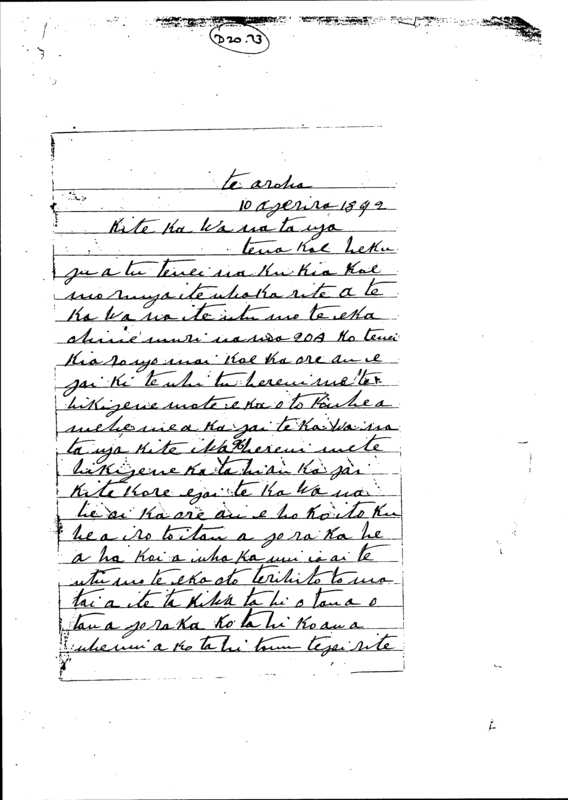 D20.73
te aroha
10 Aperira 1892
Kite Ka Wa na ta nga
tena Koe heku
pu a tu tenei na Ku Kia Koe
mo runga ite whaka rite a te
Ka Wa na ite utu mo te eka
ohine muri na no 20A Ko tenei
Kia rongo mai Koe Ka ore au e
pai Ki te whi tu hereni me te
hikipene mo te eka oto Ku hea
mehe mea Ka pai te Ka Wa na
ta nga Kite hereni me te
hikipene Ka ta hi ru Ka pai
Kite Kore e pai te Ka Wa na
he oi Ka ore au e ho Ko ito Ku
he a iro to itau a po ra Ka he
a ha Koi a wha Ka nui ia ai te
utu mo te eka oto te rihi to to ma
tai a ite ta Ki Wa ta hi o tau a o
tau a po ra Ka Ko ta hi Ko au a
whenu a Ko ta hi tonu te pai rite